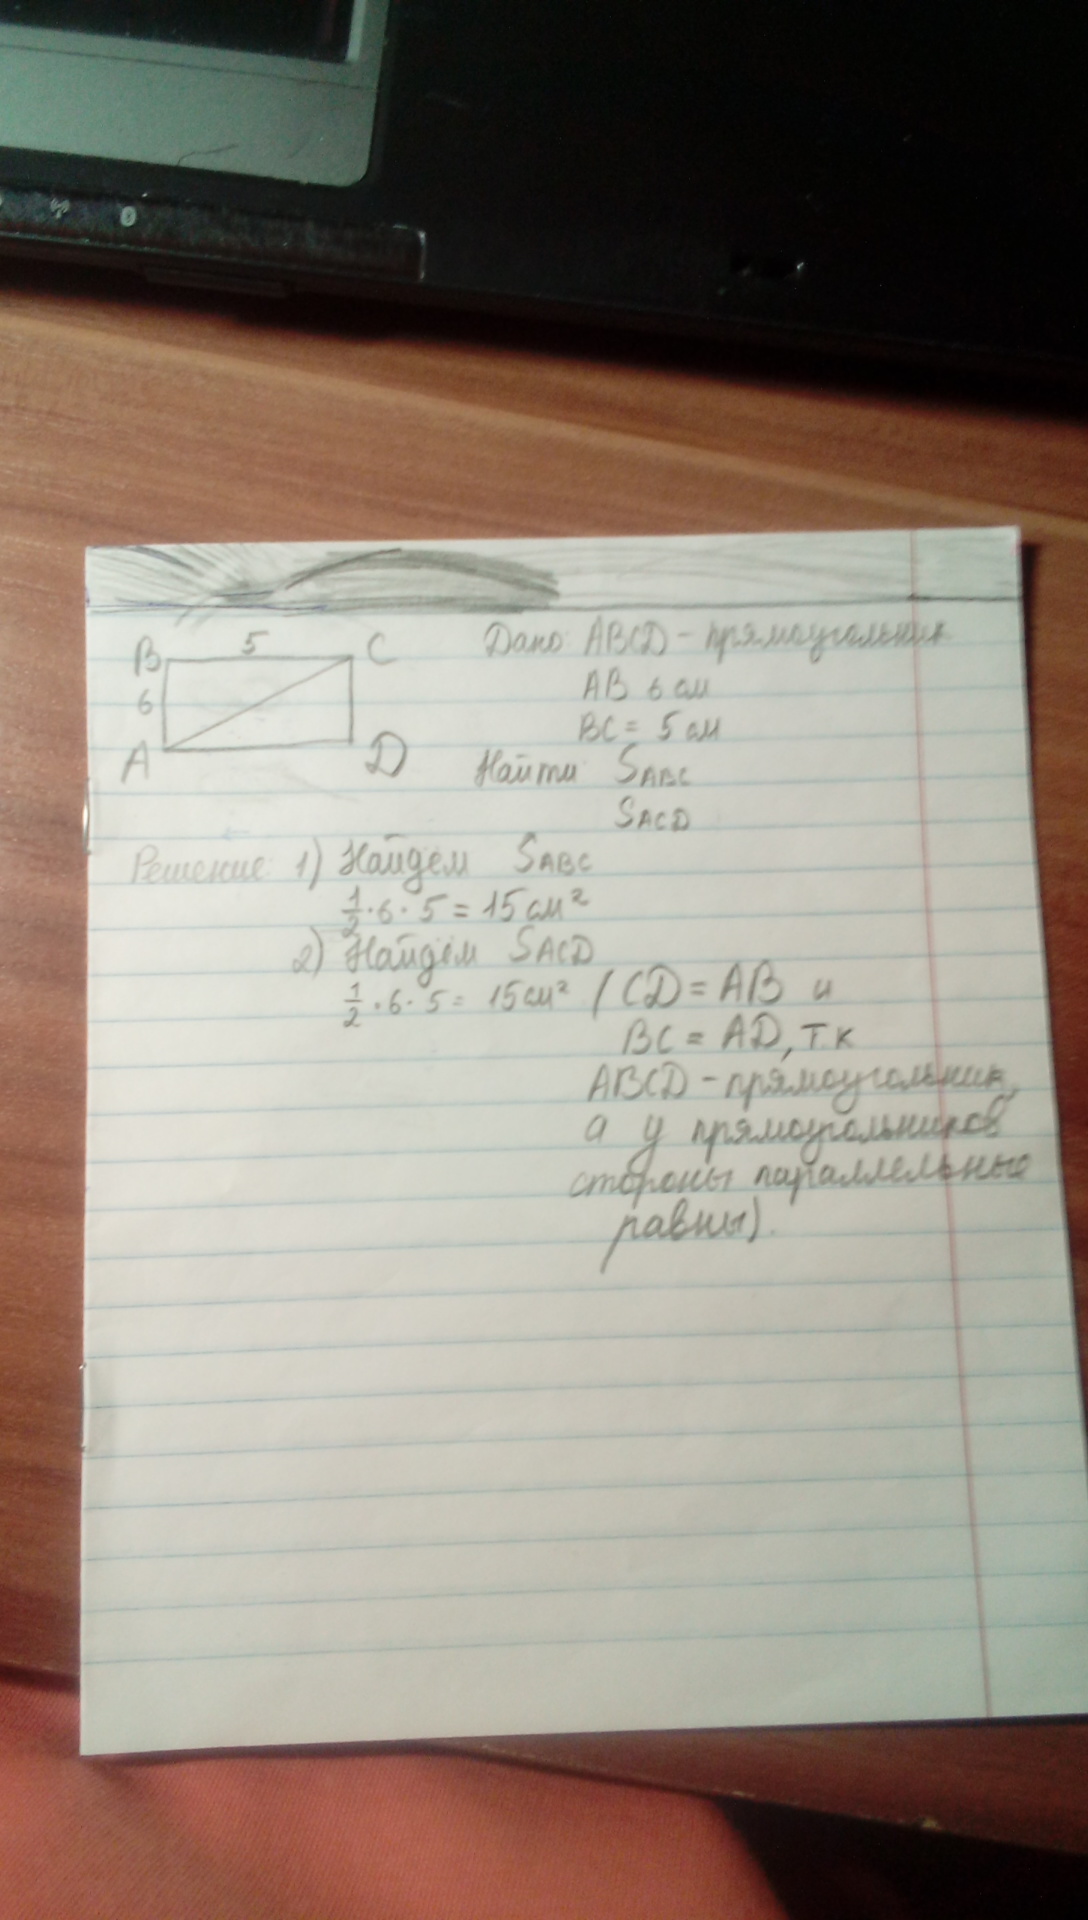 B 5 C
6
A D
Дано: ABCD - прямоугольник
AB 6 см
BC = 5 см
Найти SABC
SACD
Решение: 1) Найдем SABC
1/2 · 6 · 5 = 15 см²
2) Найдем SACD
1/2 · 6 · 5 = 15 см² (CD = AB и
BC = AD, т.к
ABCD - прямоугольник,
а у прямоугольников
стороны параллельные
равны).